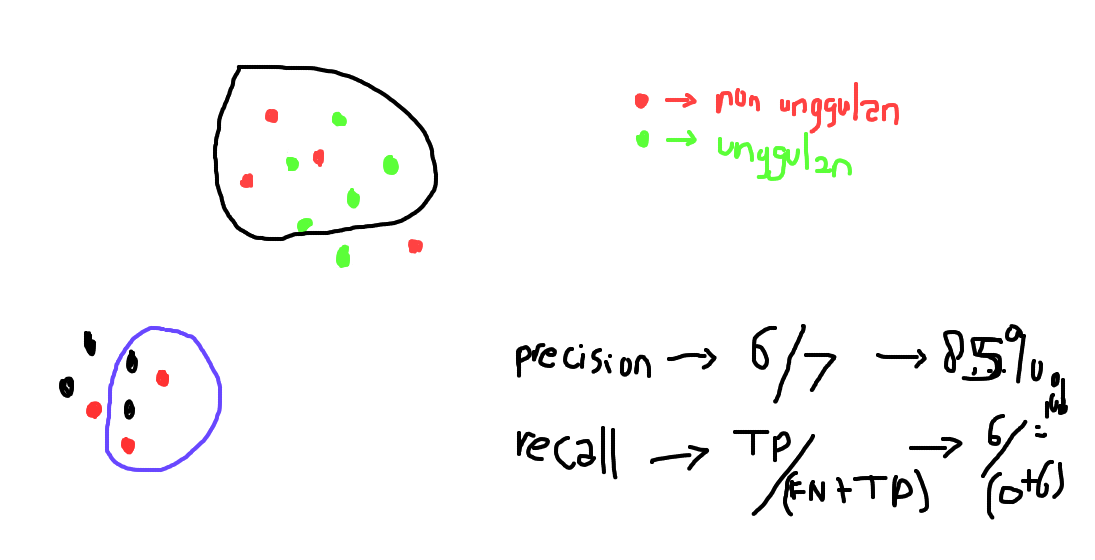 → non unggulan
→ unggulan
precision → 6/7 → 85%
recall → TP/(FN+TP) → 6/(0+6) =